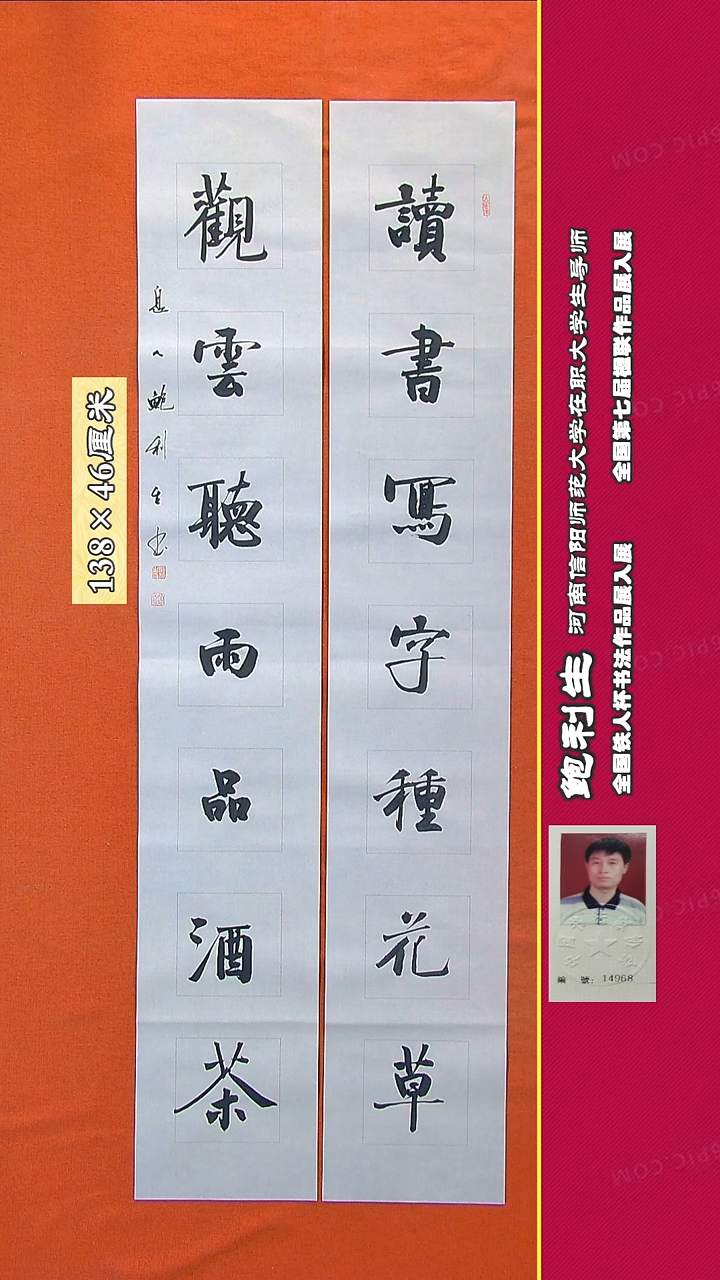 讀書寫字種花草
觀雲聽雨品酒茶
鮑利生书
138×46厘米
鲍利生 河南信阳师范大学在职大学生导师
全国铁人杯书法作品展入展 全国第七届楹联作品展入展
編號：14968